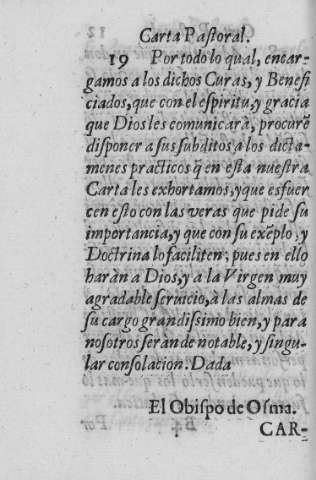 Carta Pastoral.
19 Por todo lo qual, encar-
gamos a los dichos Curas, y Benefi
ciados, que con el espiritu, y gracia
que Dios les comunicarà, procurẽ
disponer a sus subditos a los dicta-
menes practicos q̃ en esta nuestra
Carta les exhortamos, y que esfuer
cen esto con las veras que pide su
importancia, y que con su exẽplo, y
Doctrina lo faciliten; pues en ello
haràn a Dios, y a la Virgen muy
agradable seruicio, à las almas de
su cargo grandissimo bien, y para
nosotros seràn de notable, y singu-
lar consolacion. Dada
El Obispo de Osma.
CAR-